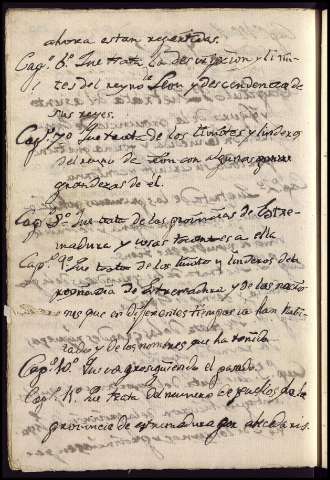 ahora estan repartidas.
Cap.º 6.º Que trata la descripcion y limi-
tes del reyno de Leon y descendencia de
sus reyes.
Cap.º 7.º Que trata de los limites y linderos
del reyno de Leon con algunas
grandezas de el.
Cap.º 8.º Que trata de las provincias de Estre-
madura y cosas tocantes a ella
Cap.º 9.º Que trata de los limites y linderos de la
provincia de Estremadura y de las nacio-
nes que en diferentes tiempos la han habi-
tado y de los nombres que ha tenido.
Cap.º 10.º Que va prosiguiendo el pasado.
Cap.º 11.º Que trata del numero de pueblos de la
provincia de estremadura por abecedario.